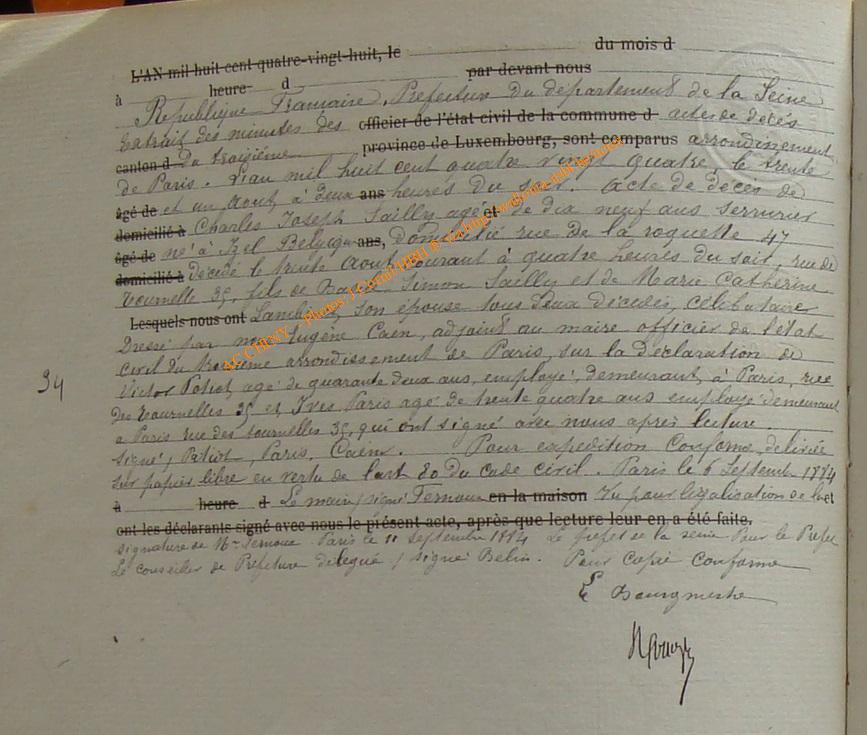 L'AN mil huit cent quatre-vingt-huit, le du mois d
à heure d par devant nous
République Française. Préfecture du département de la Seine
Extrait des minutes des officier de l'état civil de la commune d actes de décès
canton d Du troisième province de Luxembourg, sont comparus arrondissement
de Paris. L'an mil huit cent quatre vingt quatre, le trente
âgé de et un Aout, à deux ans heures du soir. acte de décès de
domicilié à Charles Joseph Sailly agé et de dix neuf ans serrurier
âgé de né à Izel Belgique ans, domicilié rue de la roquette 47
domicilié à Décédé le trente Aout courant à quatre heures du soir, rue de
Tournelle 35, fils de Simon Sailly et de Marie Catherine
Lesquels nous ont Lambinet, son épouse tous deux décédés, célibataire
Dressé par nous Eugène Caen, adjoint au maire officier de l'état
civil du troisième arrondissement de Paris, sur la Déclaration de
Victor Potiot, agé de quarante deux ans, employé, demeurant, à Paris, rue
des tournelles 35 et Yves Paris agé de trente quatre ans employé demeurant
34
a Paris rue des tournelles 35, qui ont signé avec nous après lecture.
Signé, Potiot, Paris, Caen. Pour expedition Conforme, delivrée
sur papier libre en vertu de l'art 80 du code civil. Paris le 6 Septembre 1884
à heure d Le maire, signé Ternoux en la maison Vu pour légalisation de la et
ont les déclarants signé avec nous le présent acte, après que lecture leur en a été faite.
signature de Mr Ternoux. Paris le 11 septembre 1884 Le préfet de la seine Pour le Préfet
Le conseiller de Préfecture délégué, signé Belin. Pour copie Conforme
Le Bourgmestre